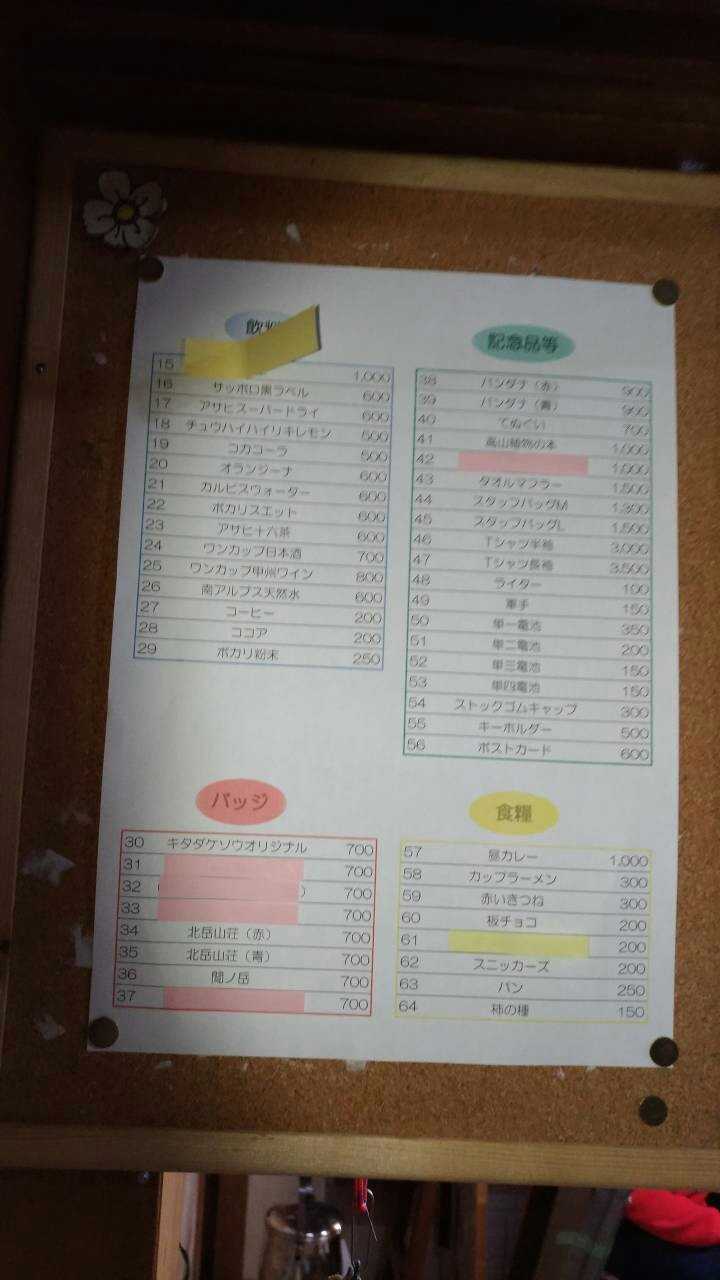 飲料
15 1,000
16 サッポロ黒ラベル 600
17 アサヒスーパードライ 600
18 チュウハイハイリキレモン 500
19 コカコーラ 500
20 オランジーナ 600
21 カルピスウォーター 600
22 ポカリスエット 600
23 アサヒ十六茶 600
24 ワンカップ日本酒 700
25 ワンカップ甲州ワイン 800
26 南アルプス天然水 600
27 コーヒー 200
28 ココア 200
29 ポカリ粉末 250
記念品等
38 バンダナ（赤） 900
39 バンダナ（青） 900
40 てぬぐい 700
41 高山植物の本 1,000
42 1,000
43 タオルマフラー 1,500
44 スタッフバッグM 1,300
45 スタッフバッグL 1,500
46 Tシャツ半袖 3,000
47 Tシャツ長袖 3,500
48 ライター 100
49 軍手 150
50 単一電池 350
51 単二電池 200
52 単三電池 150
53 単四電池 150
54 ストックゴムキャップ 300
55 キーホルダー 500
56 ポストカード 600
バッジ
30 キタダケソウオリジナル 700
31 700
32 （ ） 700
33 700
34 北岳山荘（赤） 700
35 北岳山荘（青） 700
36 間ノ岳 700
37 700
食糧
57 昼カレー 1,000
58 カップラーメン 300
59 赤いきつね 300
60 板チョコ 200
61 200
62 スニッカーズ 200
63 パン 250
64 柿の種 150